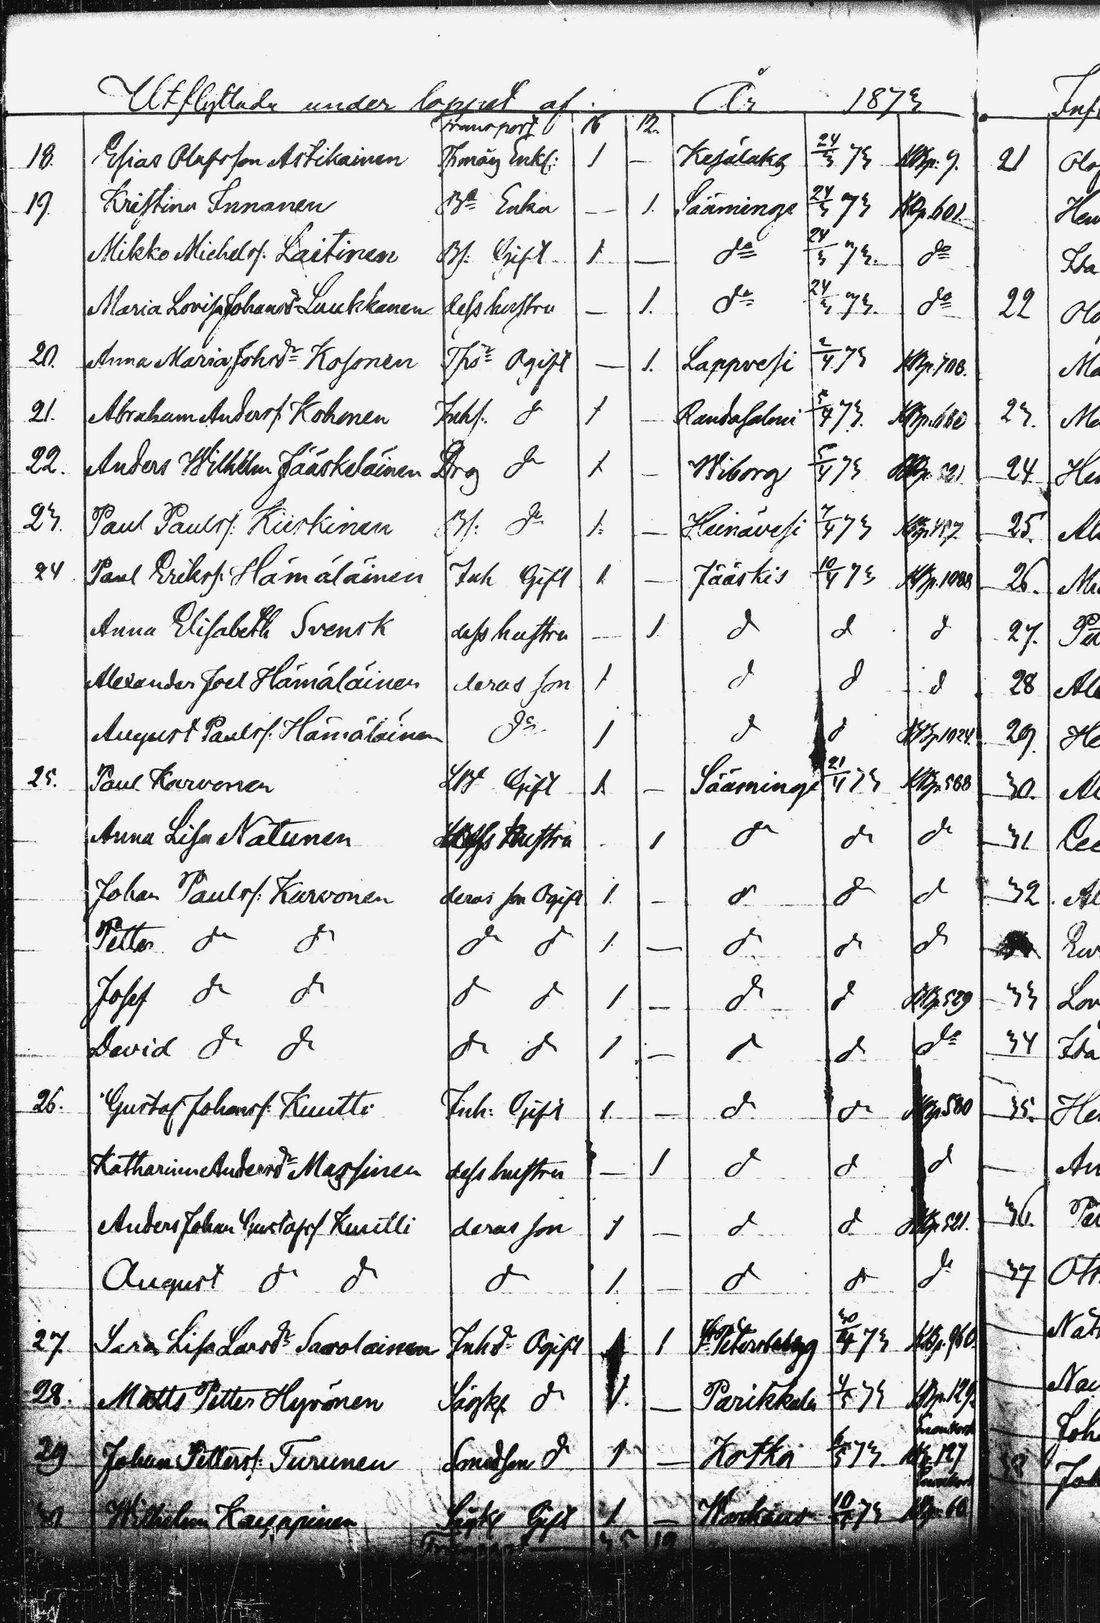 Utflyttade under loppet af År 1873
Transport 16 12.
18. Esias Olofsson Astikainen Enkl: 1 — Kesälaks 24/3 73 KBp. 9. 21
19. Kristina Innanen Ba Enka — 1. Sääminge 24/3 73 KBp. 601
Mikko Michelss. Laitinen Bs. Gift 1 — do 24/3 73. do
Maria Lovisa Johansdr Luukkanen dess hustru — 1. do 24/3 73. do 22
20. Anna Maria Johsdr Kosonen Ogift — 1. Lappvesi 2/4 73 KBp. 708.
21. Abraham Anderss. Kohonen Inhs. d 1 — Randasalmi 5/4 73. 23.
22. Anders Wilhelm Jääskeläinen Drg do 1 — Wiborg 5/4 73 KBp. 521. 24
23. Paul Paulss. Kiiskinen Bs. do 1. — Heinävesi 7/4 73 KBp. 457 25.
24 Paul Erikss. Hämäläinen Inh Gift 1 — Jääskis 10/4 73 26.
Anna Elisabeth Svensk dess hustru — 1 d d d 27.
Alexander Joel Hämäläinen deras son 1 d d d 28
August Paulss. Hämäläinen do 1 d d KBp. 1024 29.
25. Paul Karvonen Gift 1 — Sääminge 21/4 73 KBp. 588 30.
Anna Lisa Natunen dess hustru 1 do do do 31
Johan Paulss. Karvonen deras son Ogift 1 — d do d 32
Petter do do do d 1 — d do do
Josef do do d d 1 — do d KBp. 529 33
David do do do do 1 — d d do 34
26. Gustaf Johanss. Kuitti Inh: Gift 1 — d do KBp. 580 35.
Katharina Andersdr Massinen dess hustru — 1 d d d
Anders Johan Gustafss Kuitti deras son 1 — d d KBp. 521. 36.
August d d d 1. — d do do 37
27. Sara Lisa Larsdr Savolainen Inhd. Ogift 1 St Petersburg 30/4 73 KBp. 960
28. Matts Petter Hyvönen d 1. — Parikkala 4/5 73 KBp. 129.
29 Johan Petterss. Turunen d 1 — Kotka 73 127 38
30 Wilhelm Gift 1 — Warkaus 10/5 73 60
Transport 35 19